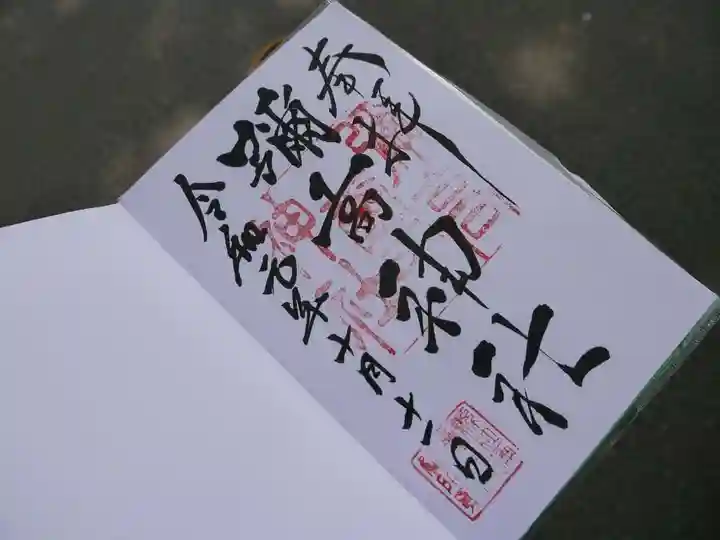 奉拝
彌高神社
令和元年十月十一日